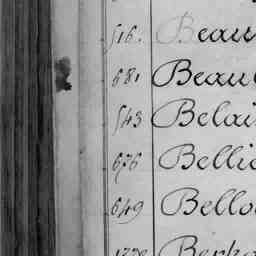 516. Beau
681 Beau
543 Belai
676 Belli
649 Bello